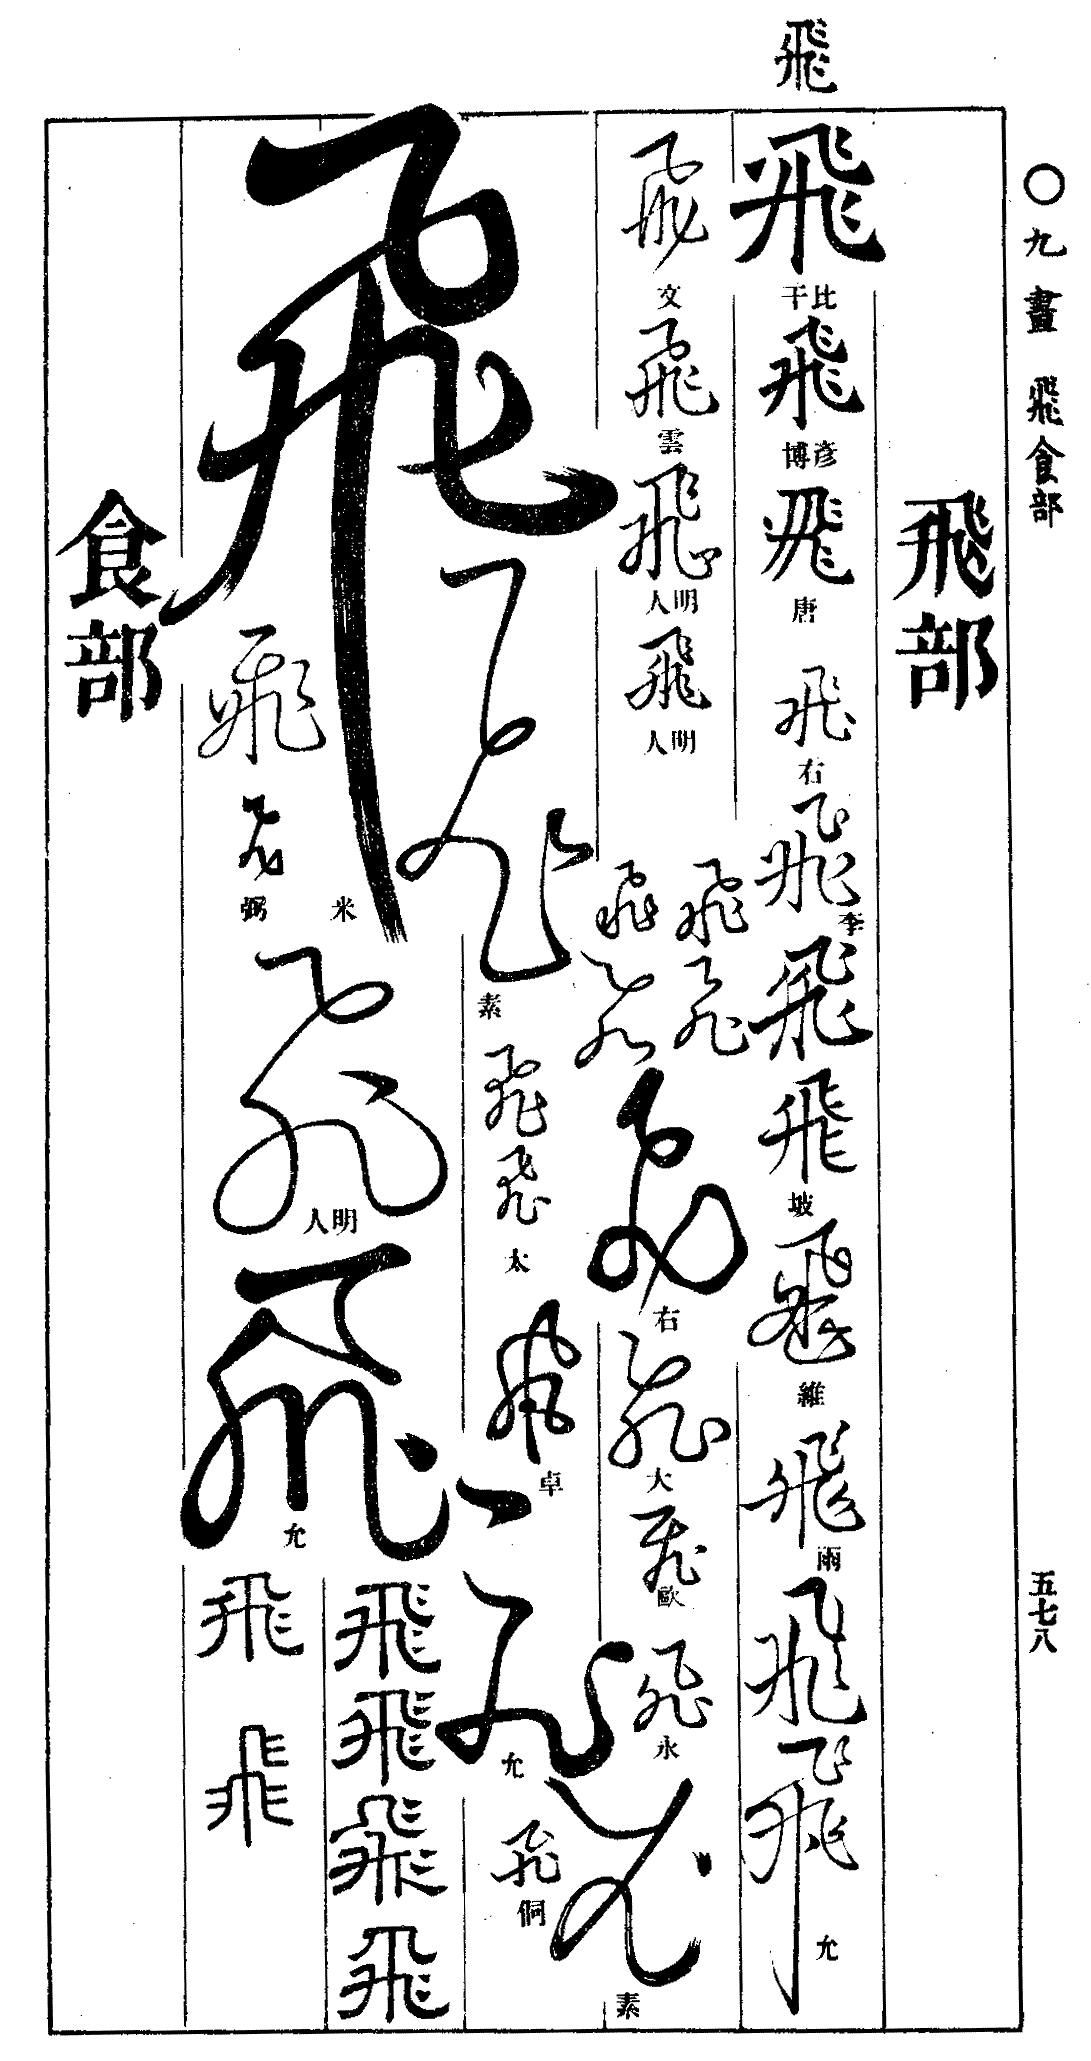 〇九畫 飛食部
五七八
飛
飛部
飛
比干
飛
彥博
飛
唐
飛
右
飛
李
飛
飛
坡
飛
維
飛
雨
飛
飛
允
飛
文
飛
雲
飛
明人
飛
明人
飛
飛
飛
飛
飛
右
飛
大
飛
歐
飛
永
飛
素
飛
素
飛
飛
太
飛
卓
飛
允
飛
侗
飛
米
飛
飛
弼
飛
明人
飛
允
飛
飛
飛
飛
飛
飛
食部